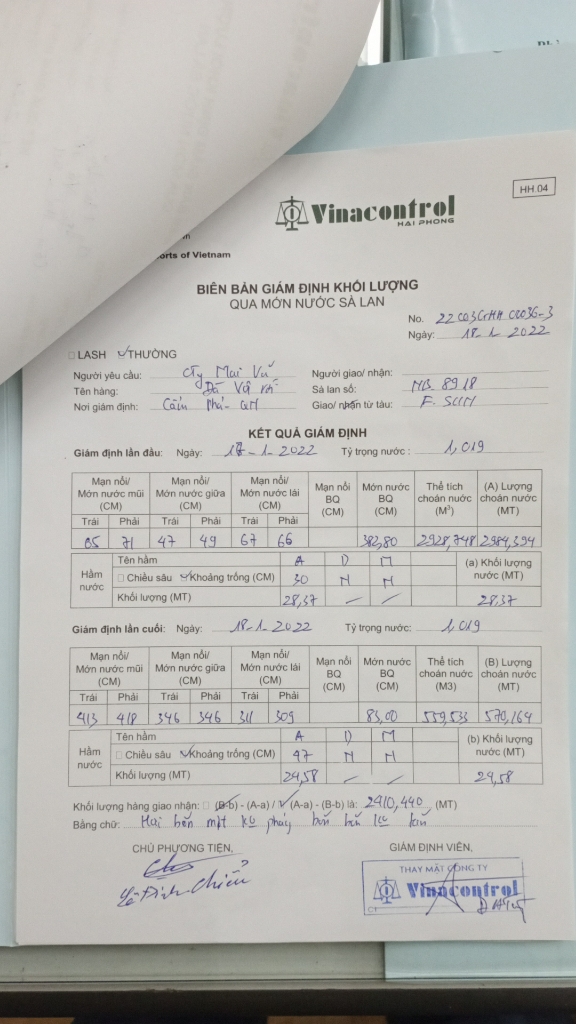 HH.04
Vinacontrol
HAI PHONG
orts of Vietnam
BIÊN BẢN GIÁM ĐỊNH KHỐI LƯỢNG
QUA MỚN NƯỚC SÀ LAN
No.
Ngày: 18-1-2022
LASH THƯỜNG
Người yêu cầu: Cty Mai Vũ Người giao/ nhận:
Tên hàng: Đá Sà lan số: NB 8918
Nơi giám định: Cẩm Phả - QN Giao/ nhận từ tàu: F. SUN
KẾT QUẢ GIÁM ĐỊNH
Giám định lần đầu: Ngày: 17-1-2022 Tỷ trọng nước: 1,019
Mạn nổi/ Mớn nước mũi (CM) Mạn nổi/ Mớn nước giữa (CM) Mạn nổi/ Mớn nước lái (CM) Mạn nổi BQ (CM) Mớn nước BQ (CM) Thể tích choán nước (M³) (A) Lượng choán nước (MT)
Trái Phải Trái Phải Trái Phải
71 47 49 67 66 382,80 2928,748 2984,394
Hầm nước Tên hầm A D M (a) Khối lượng nước (MT)
Chiều sâu Khoảng trống (CM) 30 N N
Khối lượng (MT) 28,37 28,37
Giám định lần cuối: Ngày: 18-1-2022 Tỷ trọng nước: 1,019
Mạn nổi/ Mớn nước mũi (CM) Mạn nổi/ Mớn nước giữa (CM) Mạn nổi/ Mớn nước lái (CM) Mạn nổi BQ (CM) Mớn nước BQ (CM) Thể tích choán nước (M3) (B) Lượng choán nước (MT)
Trái Phải Trái Phải Trái Phải
413 418 346 346 311 309 83,00 559,533 570,164
Hầm nước Tên hầm A D M (b) Khối lượng nước (MT)
Chiều sâu Khoảng trống (CM) 47 N N
Khối lượng (MT) 24,58 24,58
Khối lượng hàng giao nhận: (B-b) - (A-a) / (A-a) - (B-b) là: 2410,440 (MT)
Bằng chữ: Hai bốn một ko phẩy bốn bốn ko tấn
CHỦ PHƯƠNG TIỆN, GIÁM ĐỊNH VIÊN,
THAY MẶT CÔNG TY
Vinacontrol
Lê Đình Chiểu